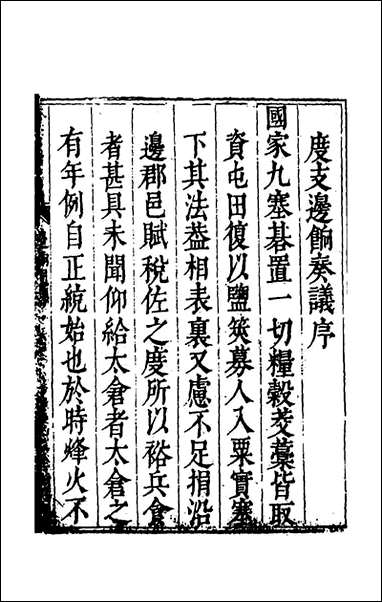 度支邊餉奏議序
國家九塞碁置一切糧穀芟藁皆取
資屯田復以鹽筴募人入粟實塞
下其法葢相表裏又慮不足捐沿
邊郡邑賦稅佐之度所以裕兵食
者甚具未聞仰給太倉者太倉之
有年例自正統始也於時烽火不